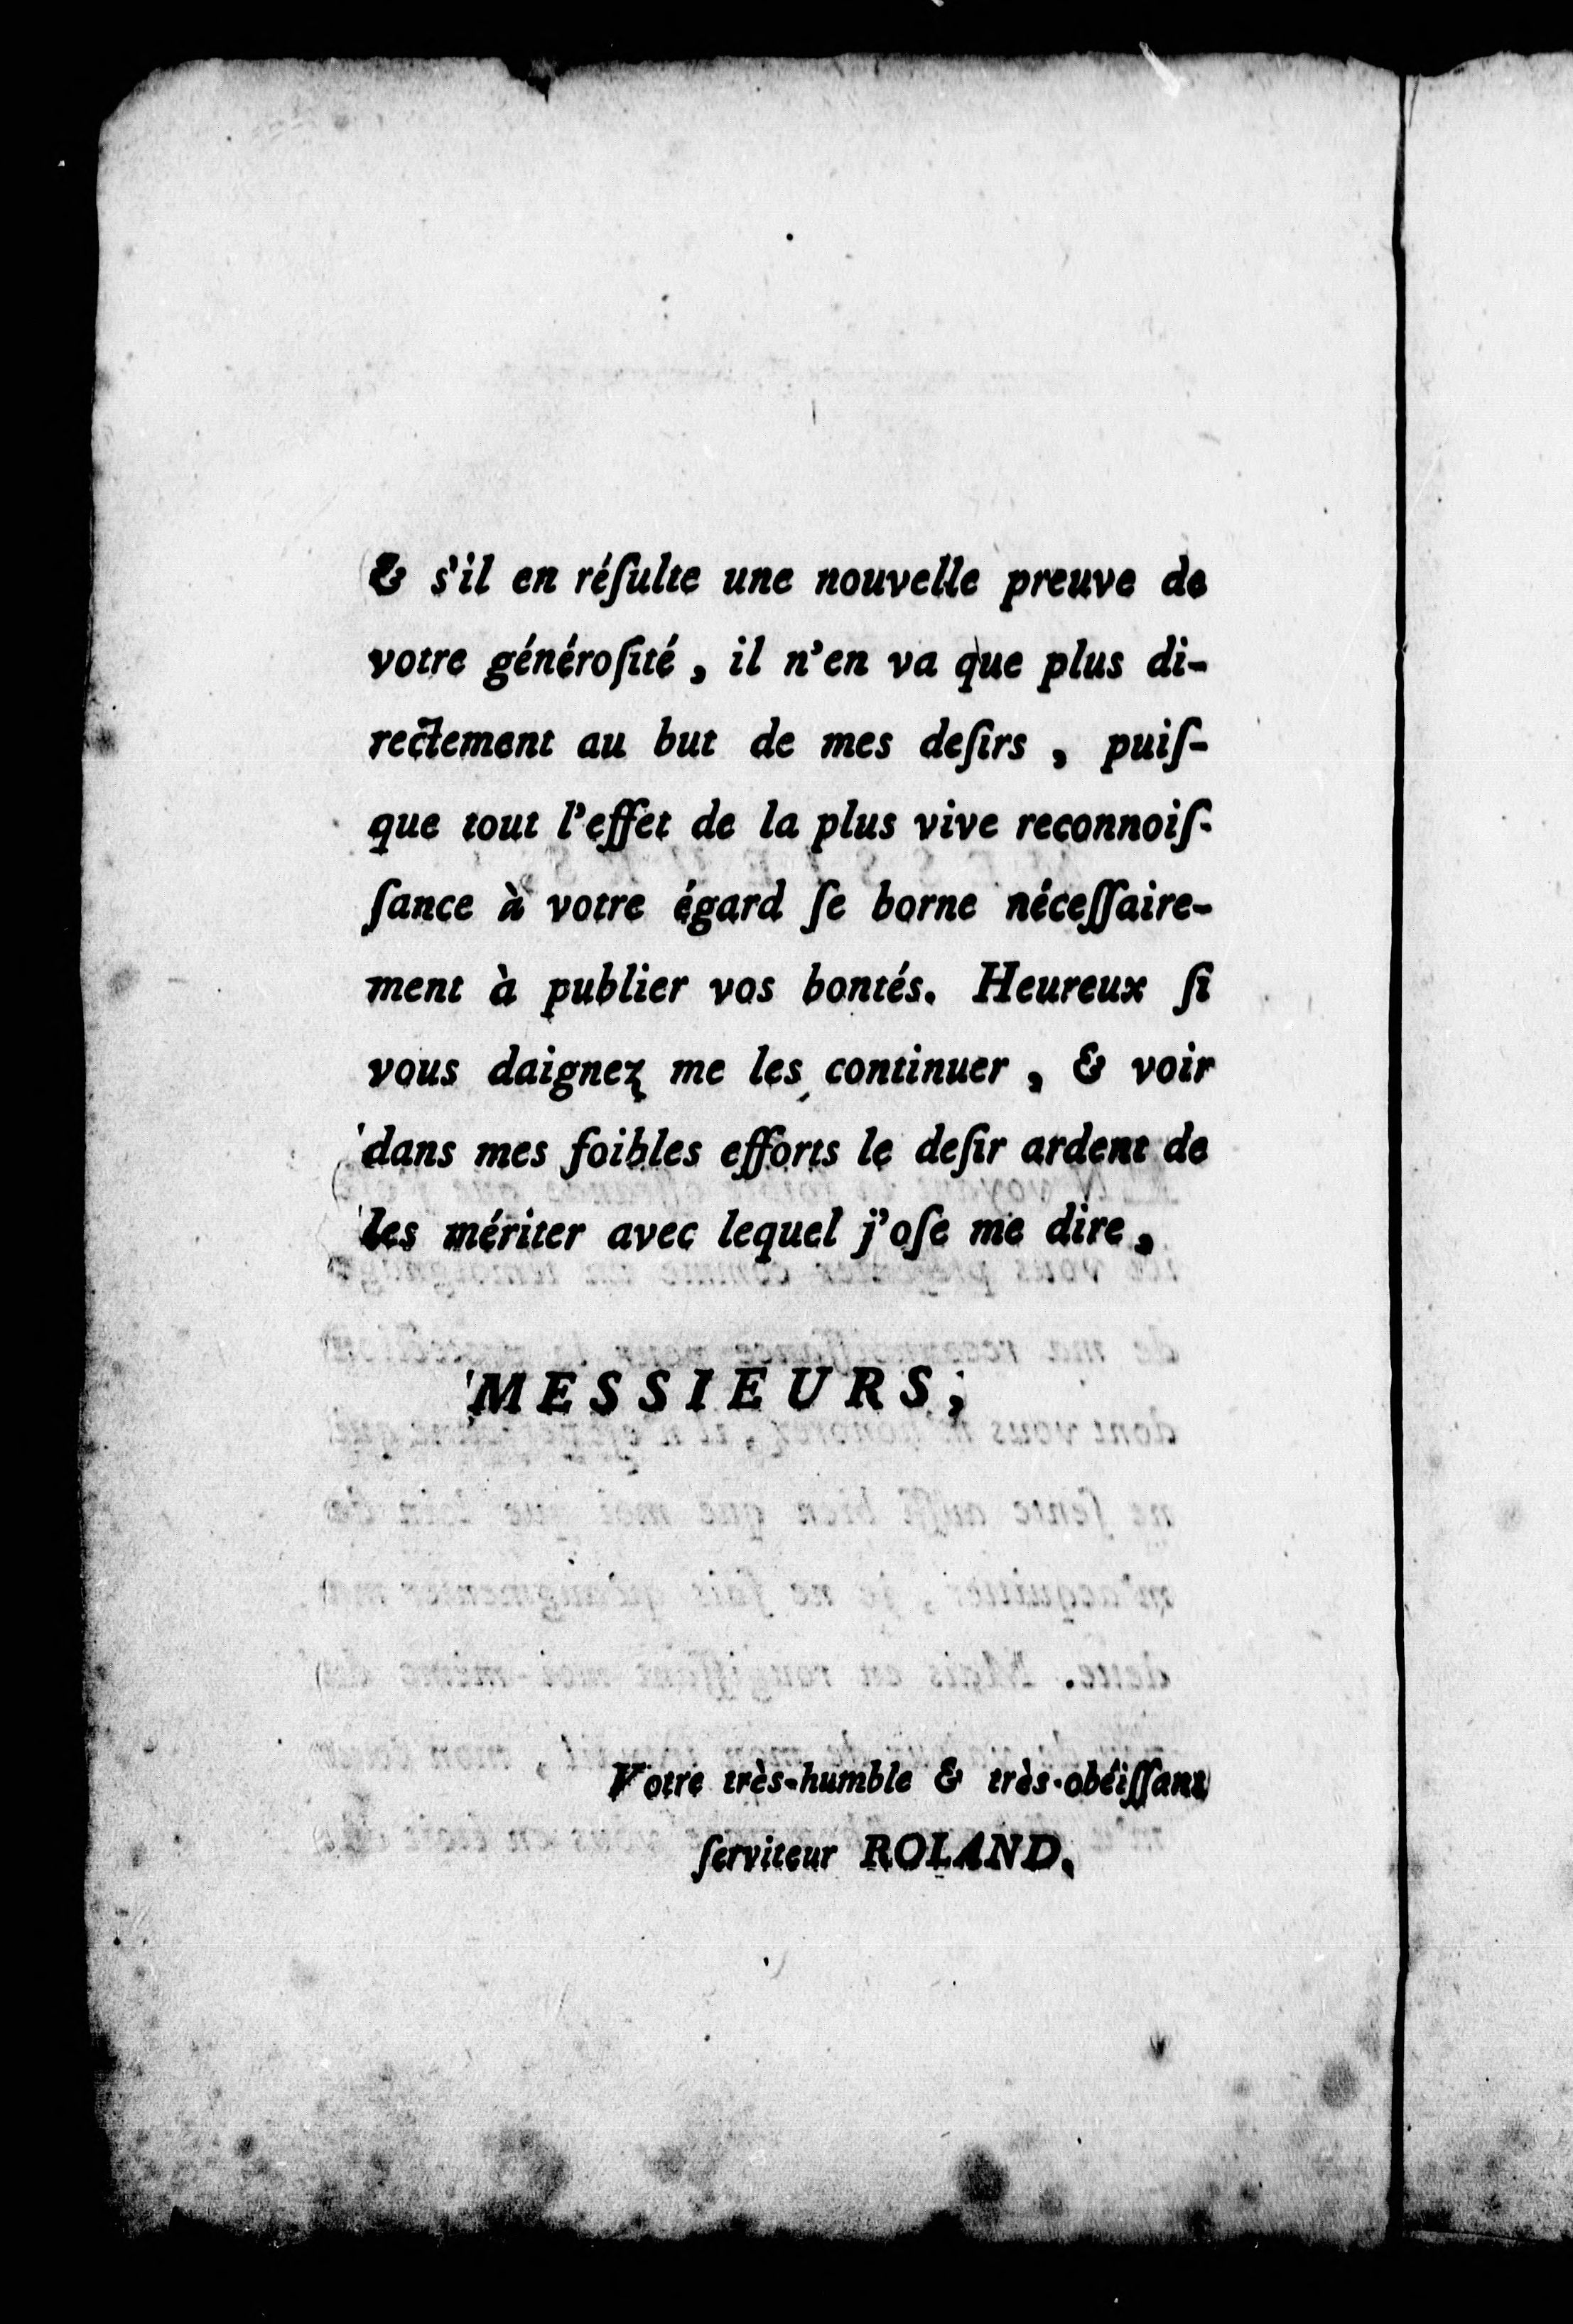 & s'il en réſulte une nouvelle preuve de
votre généroſité, il n'en va que plus di-
rectement au but de mes deſirs, puiſ-
que tout l'effet de la plus vive reconnoiſ-
ſance à votre égard ſe borne néceſſaire-
ment à publier vos bontés. Heureux ſi
vous daignez me les continuer, & voir
dans mes foibles efforts le deſir ardent de
les mériter avec lequel j'oſe me dire,
MESSIEURS,
Votre très-humble & très-obéiſſant
ſerviteur ROLAND.